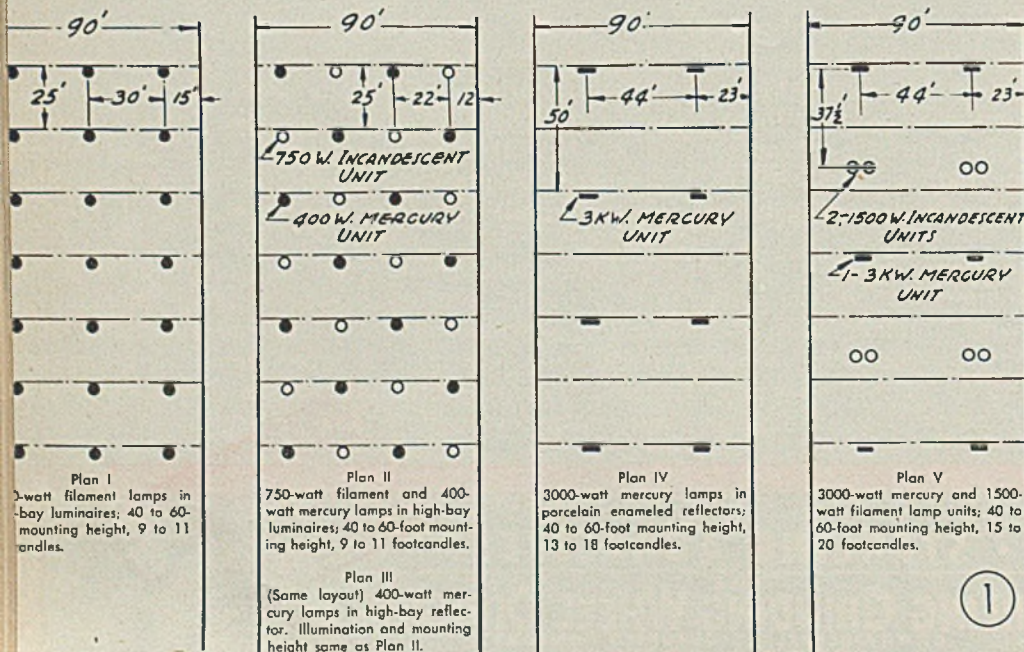 90'
25'
30'
15'
Plan I
-watt filament lamps in
-bay luminaires; 40 to 60-
mounting height, 9 to 11
andles.
90'
25'
22'
12
750 W. INCANDESCENT
UNIT
400 W. MERCURY
UNIT
Plan II
750-watt filament and 400-
watt mercury lamps in high-bay
luminaires; 40 to 60-foot mount-
ing height, 9 to 11 footcandles.
Plan III
(Same layout) 400-watt mer-
cury lamps in high-bay reflec-
tor. Illumination and mounting
height same as Plan II.
90'
50'
44'
23'
3 KW. MERCURY
UNIT
Plan IV
3000-watt mercury lamps in
porcelain enameled reflectors;
40 to 60-foot mounting height,
13 to 18 footcandles.
90'
37½'
44'
23'
2-1500 W. INCANDESCENT
UNITS
1- 3 KW. MERCURY
UNIT
Plan V
3000-watt mercury and 1500-
watt filament lamp units; 40 to
60-foot mounting height, 15 to
20 footcandles.
1